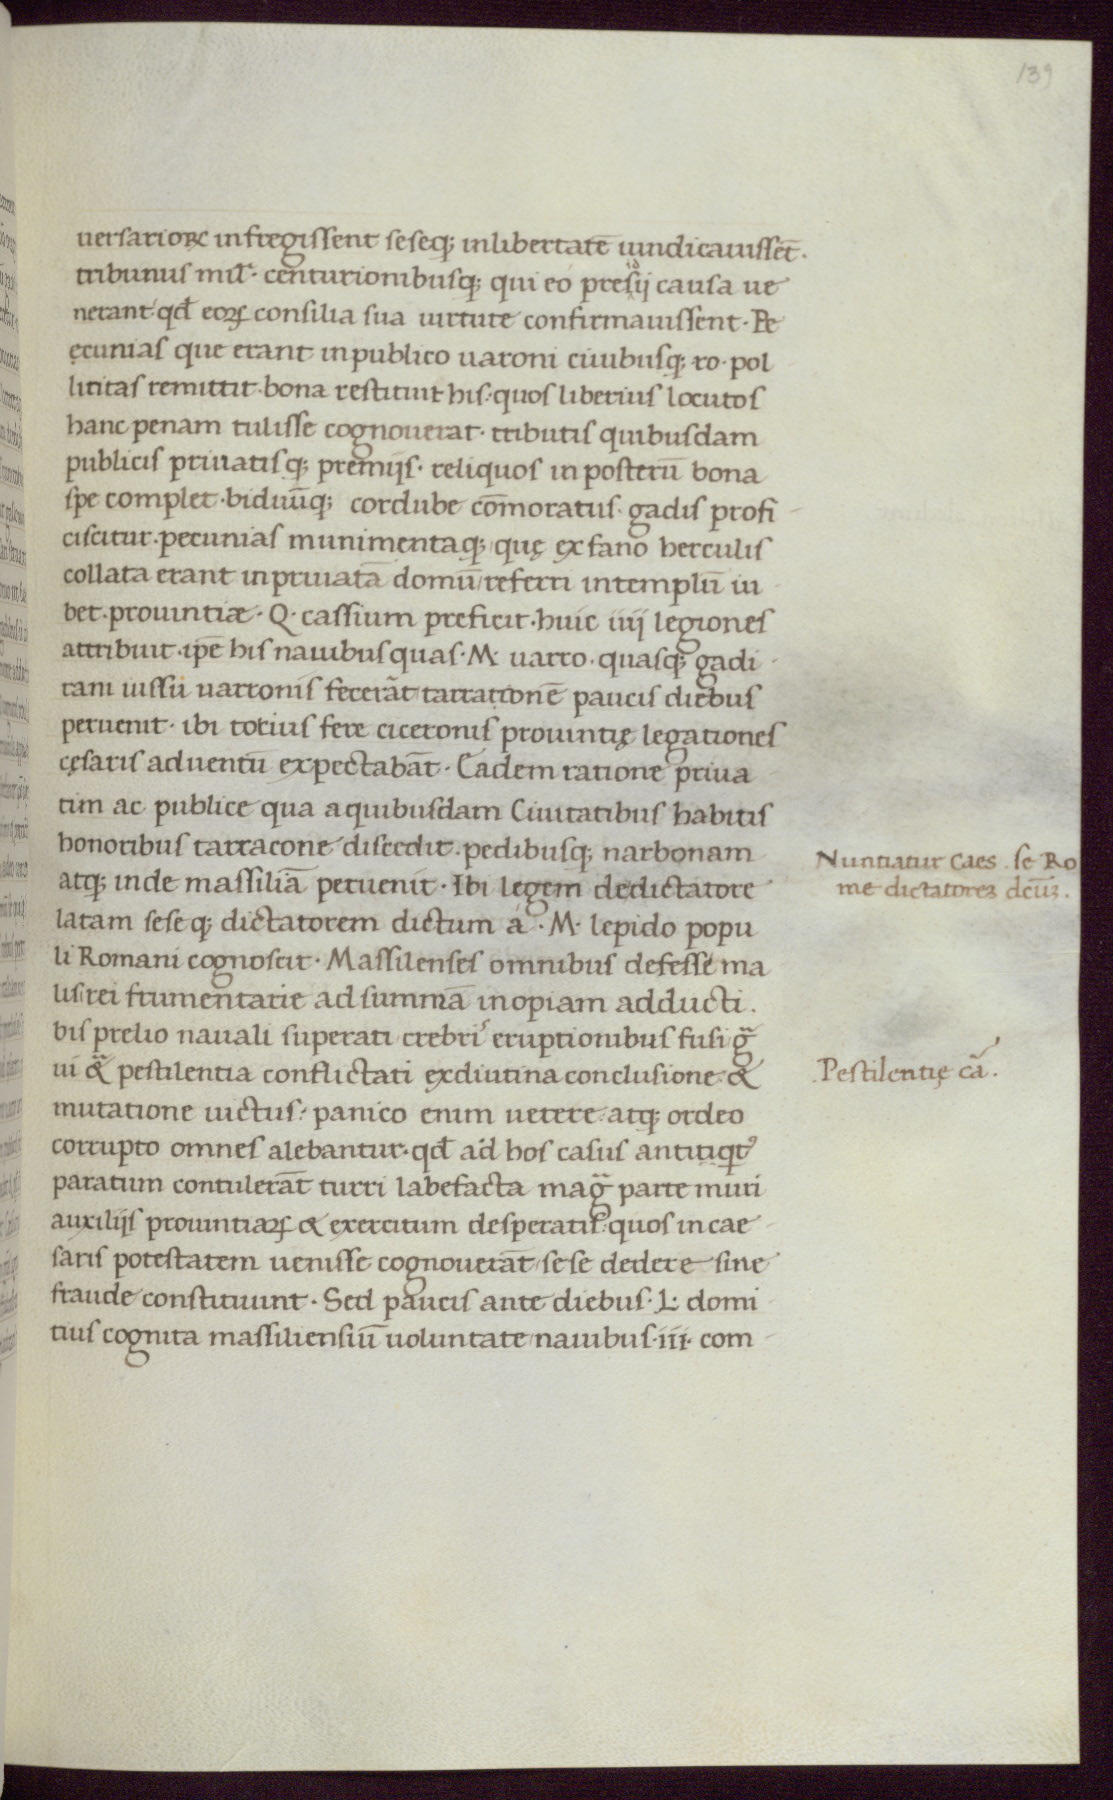 139
uersarioꝝ infregissent seseq; inlibertatē uindicauissēt.
tribunus mil̅. centurionibusq; qui eo presidij causa ue
nerant qđ eoꝝ consilia sua uirtute confirmauissent. Pe
ęcunias que erant inpublico uaroni ciuibusq; ro. pol
licitas remittit. bona restituit his. quos liberius locutos
hanc penam tulisse cognouerat. tributis quibusdam
publicis priuatisq; premijs. reliquos in posterū bona
spe complet. biduūq; cordube cōmoratus. gadis profi
ciscitur. pecunias munimentaq; quę ex fano herculis
collata erant inpriuatā domū referri intemplū iu
bet. prouintiæ. Q. cassium preficit. huic iiij legiones
attribuit. ip̄e his nauibus quas. M. uarro. quasq; gadi
tani iussu uarronis fecerāt tarrationē paucis diebus
peruenit. ibi totius fere ciceronis prouintię legationes
cęsaris aduentū expectabāt. Eadem ratione priua
tim ac publice qua aquibusdam Ciuitatibus habitis
honoribus tarracone discedit. pedibusq; narbonam
atq; inde massiliā peruenit. Ibi legem dedictatore
latam sese q; dictatorem dictum a. M. lepido popu
li Romani cognoscit. Massilenses omnibus defesse ma
lis rei frumentarie ad summā inopiam adducti.
bis prelio nauali superati crebris eruptionibus fusi gͣ
ui &ͣ pestilentia conflictati exdiutina conclusione &
mutatione uictus. panico enim uetere. atq; ordeo
corrupto omnes alebantur. qđ ad hos casus antitiqt᷒
paratum contulerāt turri labefacta magͣ parte muri
auxilijs prouintiaꝝ & exercitum desperatis. quos in cae
saris potestatem uenisse cognouerāt sese dedere sine
fraude constituunt. Sed paucis ante diebus. L. domi
tius cognita massiliensiū uoluntate nauibus. iii. com
Nuntiatur Caes. se Ro
me dictatoreꝫ dcūꝫ.
Pestilentię cā.